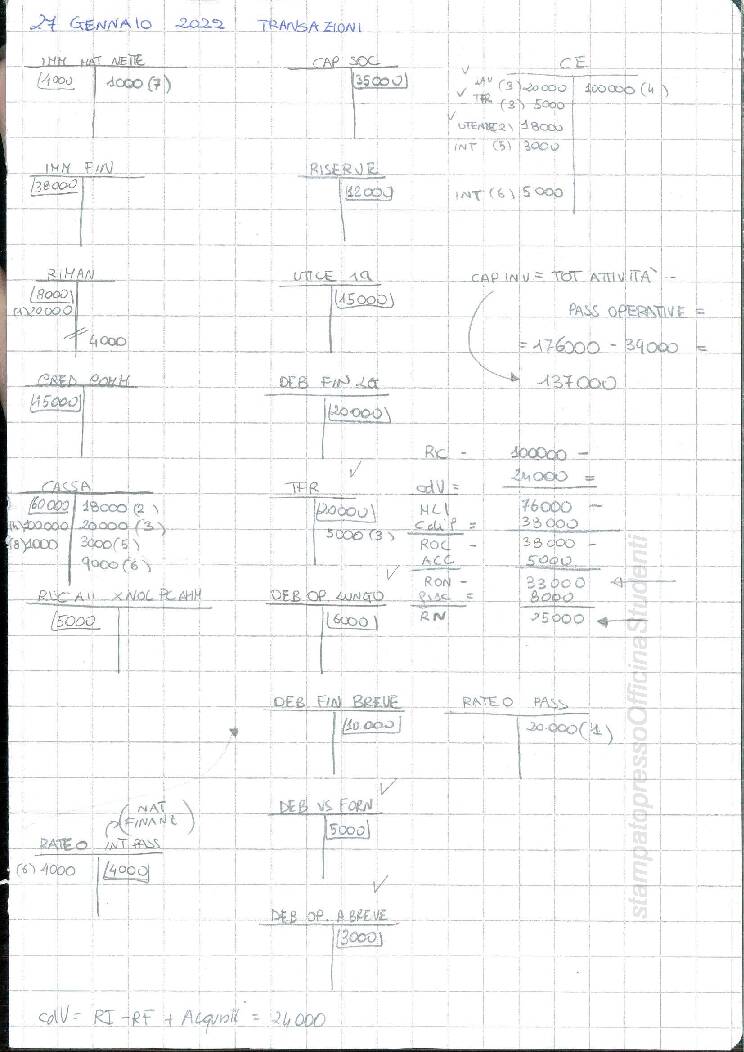 27 GENNAIO 2022 TRANSAZIONI
IMM MAT NETTE
4000 1000 (7)
CAP SOC
35000
CE
(3) 20000 100000 (4)
TFR (3) 5000
(2) 18000
INT (5) 3000
INT (6) 5000
IMM FIN
38000
RISERVE
12000
RIMAN
8000
(1) 20000
4000
UTILE
15000
CAP INV = TOT ATTIVITÀ -
PASS OPERATIVE =
= 176000 - 39000 =
137000
CRED COMM
45000
DEB FIN
20000
CASSA
60000 18000 (2)
100000 20000 (3)
(8) 1000 3000 (5)
9000 (6)
TFR
20000
5000 (3)
Ric - 100000 -
cdV = 24000 =
MCI 76000 -
= 38000
ROC - 38000 -
ACC 5000
RON - 33000
= 8000
RN 25000
5000
DEB OP LUNGO
6000
DEB FIN BREVE
10.000
RATEO PASS
20.000 (1)
(NAT
FINANZ)
RATEO INT PASS
(6) 4000 4000
DEB VS FORN
5000
DEB OP. A BREVE
3000
cdV = RI - RF + Acquisti = 24000
stampatopressoOfficinaStudenti